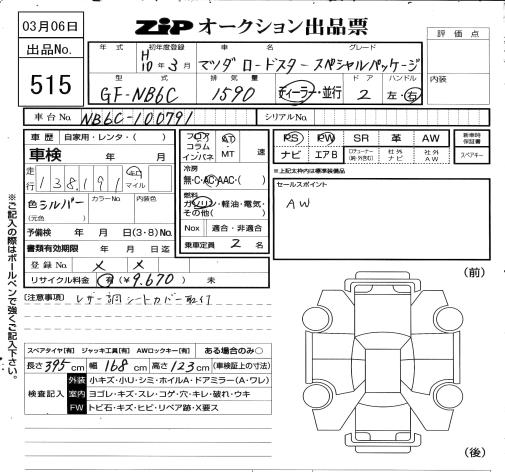 03月06日
ZIP オークション出品票
評価点
出品No.
515
年式 初年度登録 車名 グレード
H10年3月 マツダ ロードスター スペシャルパッケージ
型式 排気量 ドア ハンドル
GF-NB6C 1590 ディーラー・並行 2 左・右
内装
車台No. NB6C-100791 シリアルNo.
車歴 自家用・レンタ・( )
車検 年 月
走行 138,191 km マイル
色 シルバー (元色) カラーNo. 内装色
予備検 年 月 日(3・8)No.
書類有効期限 年 月 日迄
登録No. × ×
リサイクル料金 有 (¥9.670) 未
フロア コラム インパネ AT・MT 速
冷房
無・C・AC・AAC・( )
燃料
ガソリン・軽油・電気・その他( )
Nox 適合・非適合
乗車定員 2 名
PS PW SR 革 AW 新車時保証書
ナビ エアB 社外ナビ 社外AW スペアキー
※上記太枠内は標準装備品
セールスポイント
AW
※ご記入の際はボールペンで強くご記入下さい。
(注意事項) レザー調シートカバー取付
スペアタイヤ[有] ジャッキ工具[有] AWロックキー[有] ある場合のみ○
長さ395cm 幅168cm 高さ123cm (車検証上の寸法)
検査記入
外装 小キズ・小U・シミ・ホイルA・ドアミラー(A・ワレ)
室内 ヨゴレ・キズ・スレ・コゲ・穴・キレ・破れ・ウキ
FW トビ石・キズ・ヒビ・リペア跡・X要ス
(前)
(後)